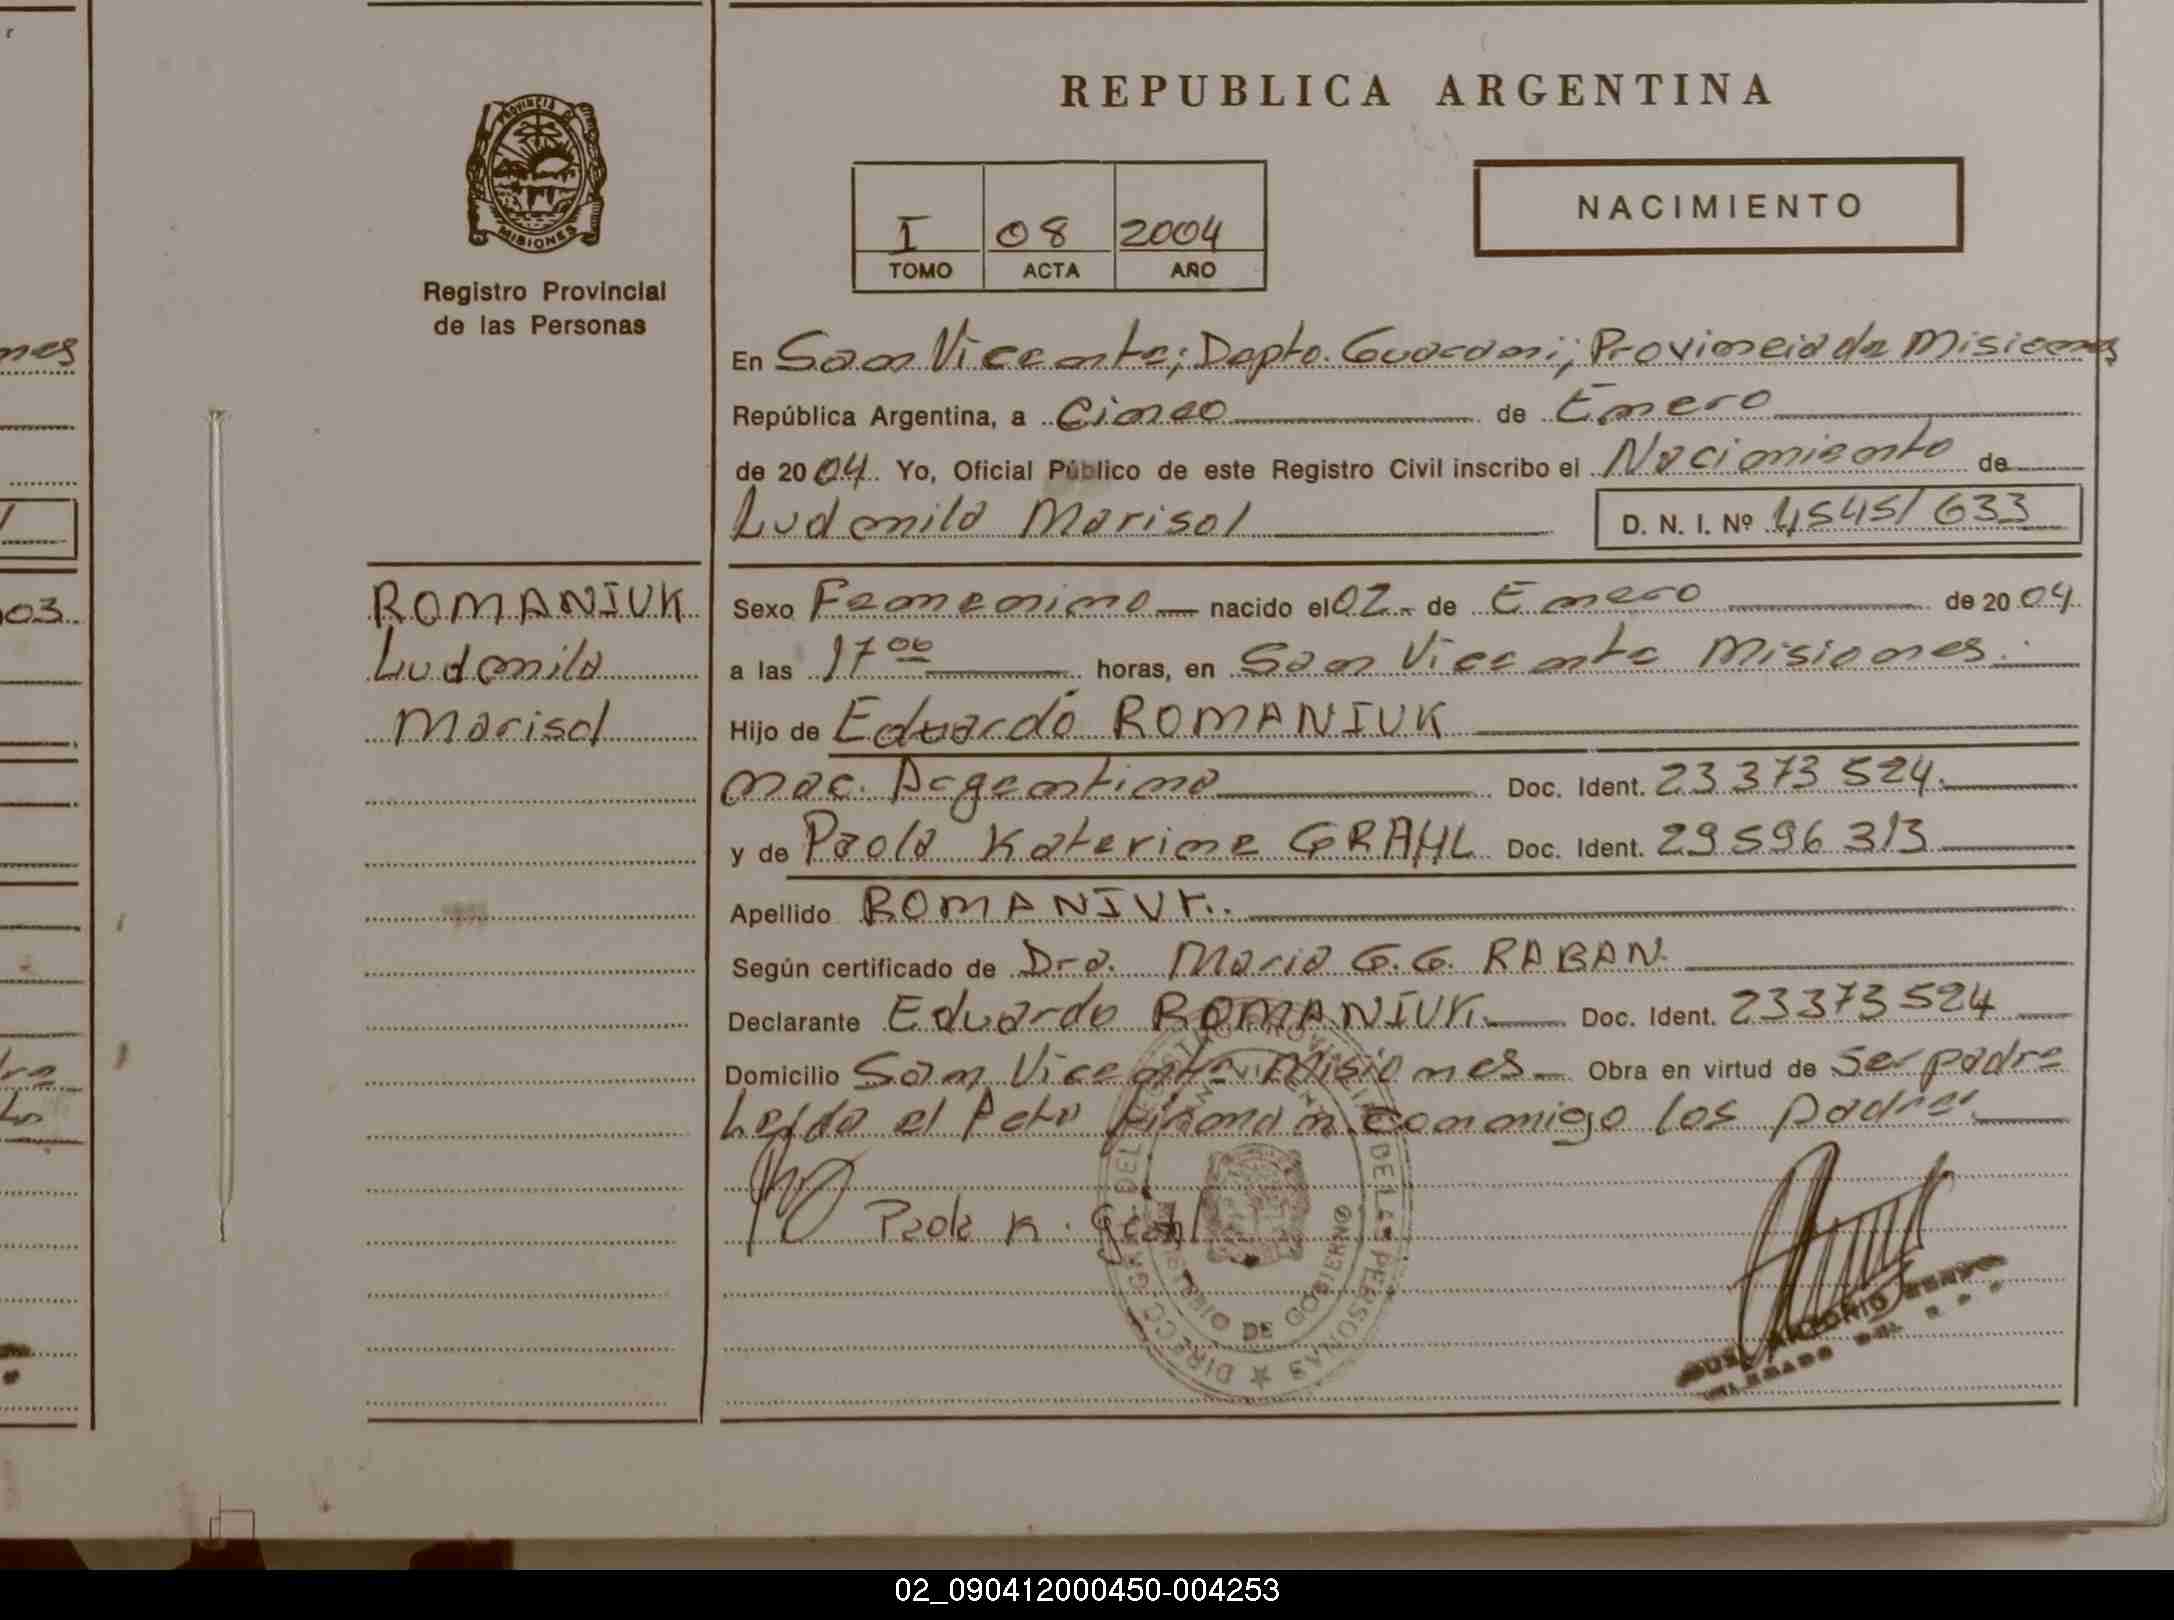 REPUBLICA ARGENTINA
PROVINCIA DE
MISIONES
Registro Provincial
de las Personas
I 08 2004
TOMO ACTA AÑO
NACIMIENTO
En San Vicente; Dpto. Guarani; Provincia de Misiones
República Argentina, a Cinco de Enero
de 2004. Yo, Oficial Público de este Registro Civil inscribo el Nacimiento de
Ludmila Marisol D. N. I. Nº 45451633
ROMANIUK
Ludmila
Marisol
Sexo Femenino nacido el 02 de Enero de 2004
a las 17 00 horas, en San Vicente Misiones.
Hijo de Eduardo ROMANIUK
nac. Argentina Doc. Ident. 23 373 524.
y de Paola Katerine GRAHL Doc. Ident. 29 596 313
Apellido ROMANIUK.
Según certificado de Dra. Maria G.G. RABAN.
Declarante Eduardo ROMANIUK. Doc. Ident. 23373524
Domicilio San Vicente Misiones Obra en virtud de Ser padre
Leída el Acta firman conmigo los padres
Paola K. Grahl
DIRECC. GRAL. DEL REGISTRO PROVINCIAL DE LAS PERSONAS
DE GOBIERNO
ANTONIO
nes
03.
dre
02_090412000450-004253